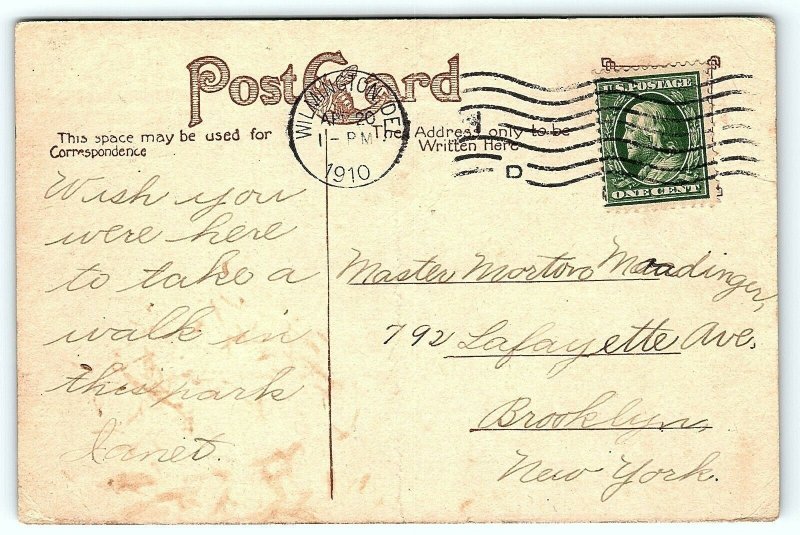 Post Card
WILMINGTON, DEL.
20
1 - PM
1910
D
U.S. POSTAGE
ONE CENT
This space may be used for
Correspondence
The Address only to be
Written Here
Wish you
were here
to take a
walk in
this park
Janet.
Master Morton
792 Lafayette Ave.
Brooklyn,
New York.